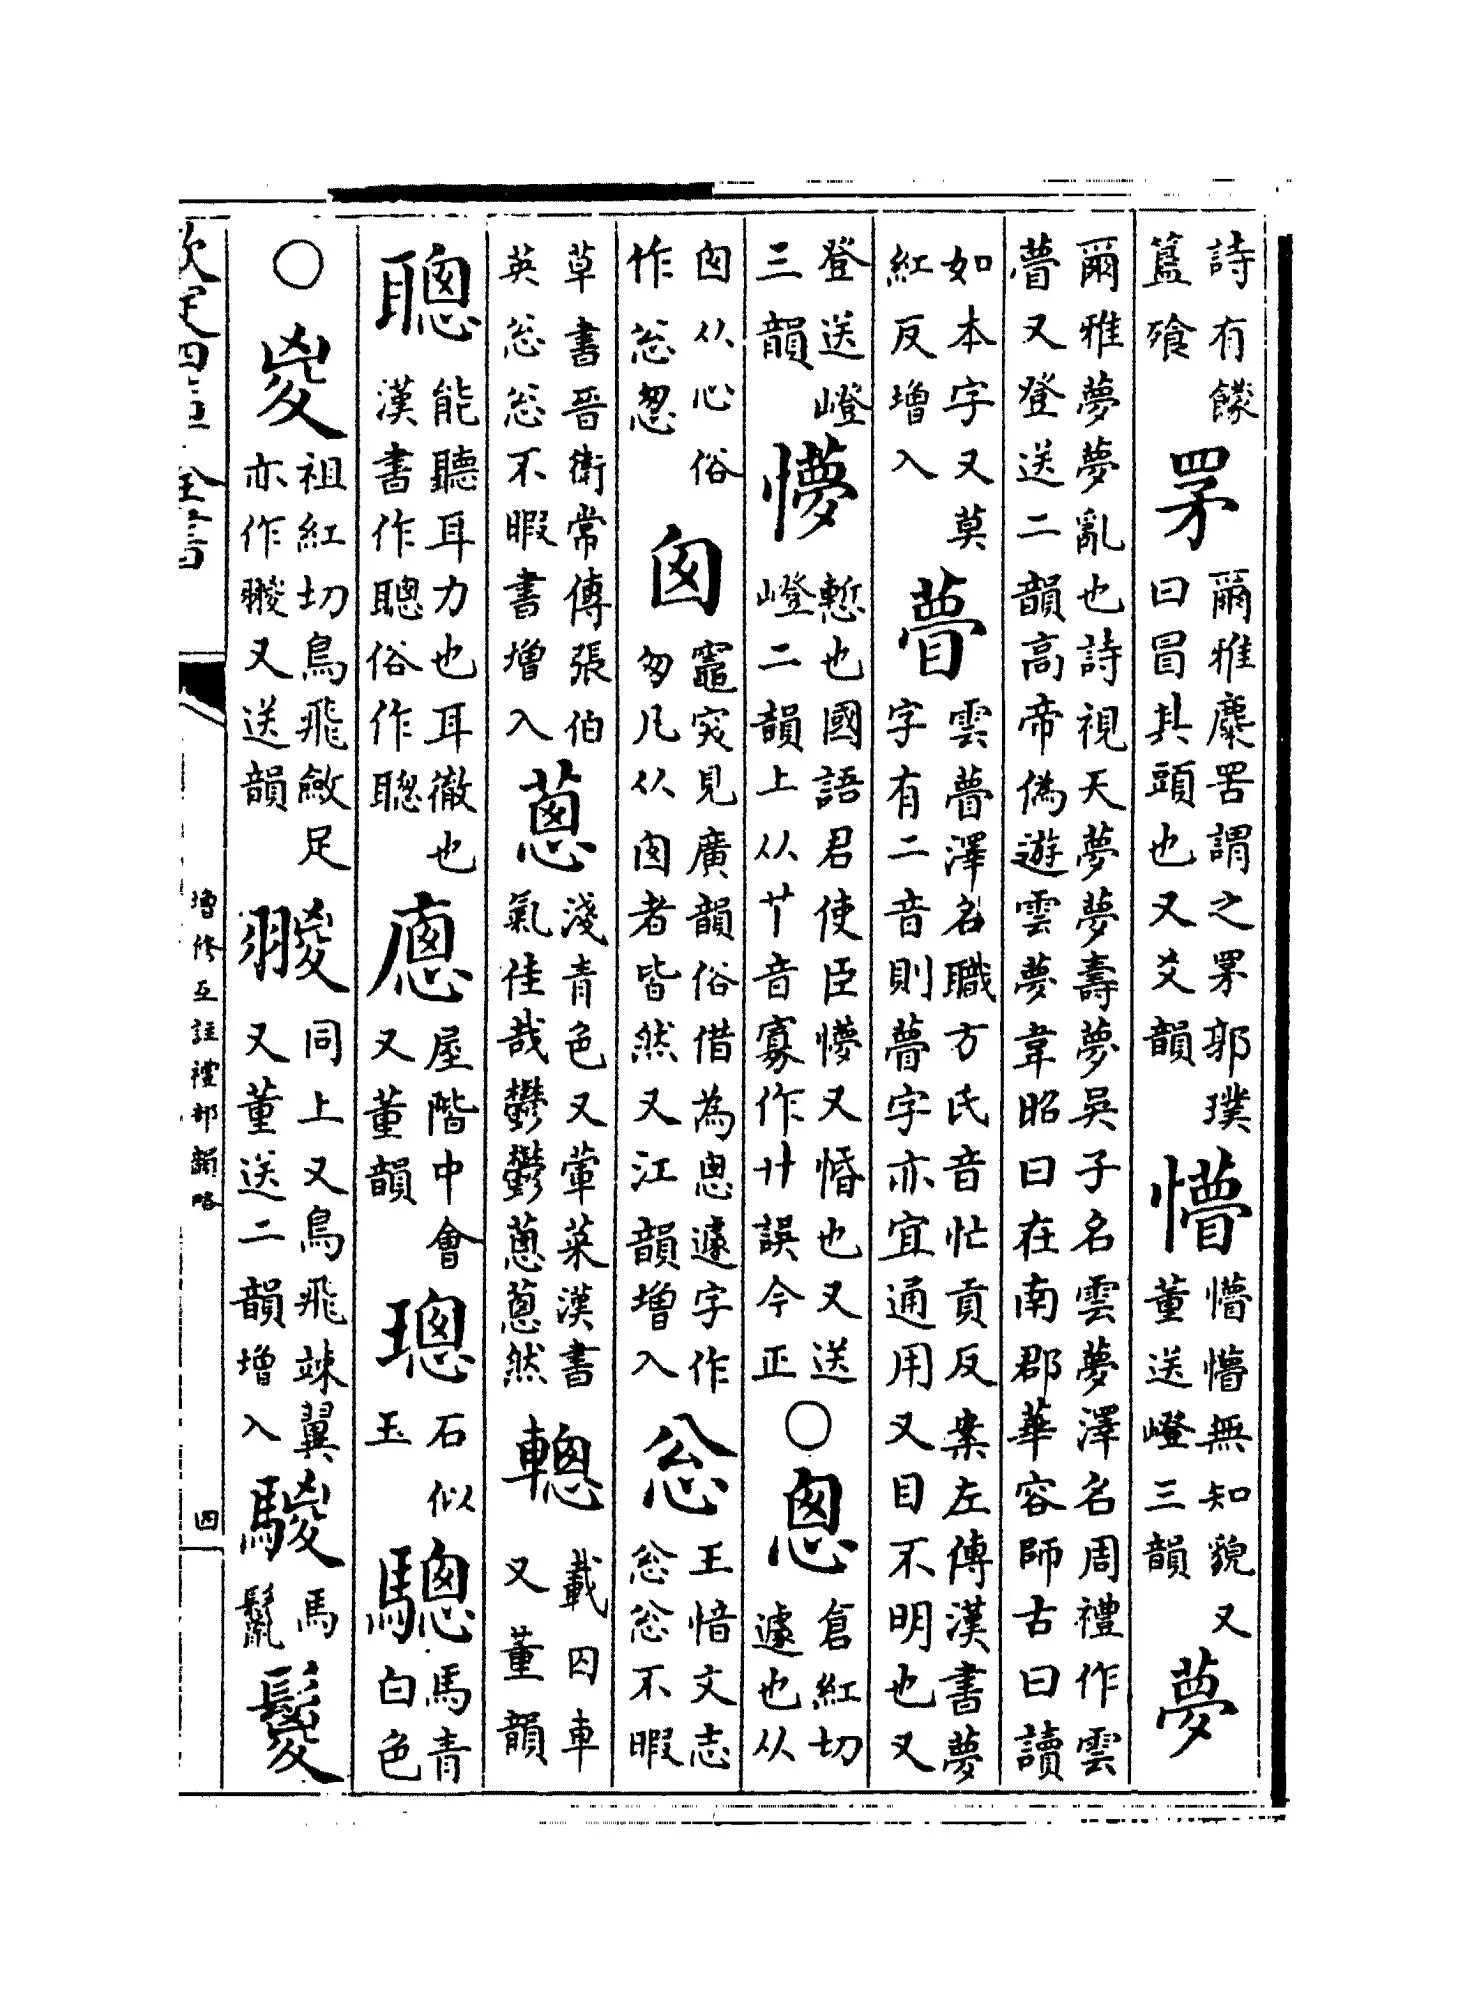 詩有饛簋飱 罞 爾雅麋罟謂之罞郭璞曰冒其頭也又爻韻 懵 懵懵無知貌又董送嶝三韻 夢
爾雅夢夢亂也詩視天夢夢壽夢吳子名雲夢澤名周禮作雲瞢又登送二韻高帝偽遊雲夢韋昭曰在南郡華容師古曰讀
如本字又莫紅反增入 瞢 雲瞢澤名職方氏音忙貢反案左傳漢書夢字有二音則瞢字亦宜通用又目不明也又
登送嶝三韻 懜 慙也國語君使臣懜又惛也又送嶝二韻上从艹音寡作廾誤今正 ○ 悤 倉紅切遽也从
囱从心俗作忩怱 囱 竈突見廣韻俗借為悤遽字作匆凡从囱者皆然又江韻增入 忩 王愔文志忩忩不暇
草書晉衛常傳張伯英忩忩不暇書增入 蔥 淺青色又葷菜漢書氣佳哉鬱鬱蔥蔥然 䡯 載囚車又董韻
聰 能聽耳力也耳徹也漢書作聰俗作聡 㢔 屋階中會又董韻 璁 石似玉 驄 馬青白色
○ 㚇 祖紅切鳥飛斂足亦作翪又送韻 翪 同上又鳥飛竦翼又董送二韻增入 騣 馬鬛 鬉
欽定四庫全書 增修互註禮部韻略 四